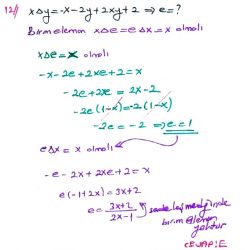 12// xΔy=-x-2y+2xy+2 ⇒ e=?
Birim eleman xΔe=eΔx=x olmalı
xΔe=x olmalı
-x-2e+2xe+2=x
-2e+2xe=2x-2
-2e(1-x)=-2(1-x)
-2e=-2 ⇒ e=1
eΔx=x olmalı
-e-2x+2xe+2=x
e(-1+2x)=3x+2
e=3x+2/2x-1 sadeleşmediğinde
birim eleman
yoktur
CEVAP:E